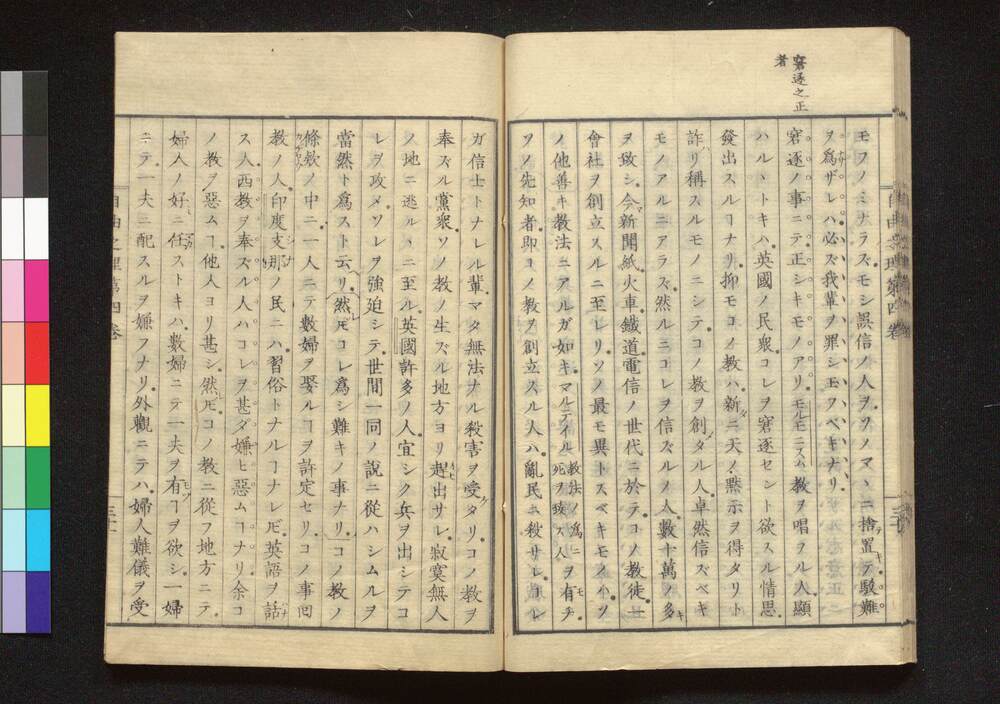 窘逐之正
者
モフノミナラズモシ誤信ノ人ヲソノマヽニ捨置キテ駁難
ヲ爲ザレハ必ズ我輩ヲ罪シ玉フベキナリ
窘逐ノ事ニテ正シキモノアリモルモニスム教ヲ唱ヲル人顯
ハルヽトキハ英國ノ民衆コレヲ窘逐セント欲スル情思
發出スルヿナリ抑モコノ教ハ新タニ天ノ黙示ヲ得タリト
詐リ稱スルモノニシテコノ教ヲ創タル人卓然信ズベキ
モノアルニアラズ然ルニコレヲ信ズルノ人數十萬ノ多キ
ヲ致シ今新聞紙火車鐵道電信ノ世代ニ於テコノ教徒一
會社ヲ創立スルニ至レリソノ最モ異トスベキモノハソ
ノ他善キ教法ニアルガ如キマルテイル教法ノ爲ニ死ヲ致ス人ヲ有チ
ソノ先知者即コノ教ヲ創立スル人ハ亂民ニ殺サレコレ
ガ信士トナレル輩マタ無法ナル殺害ヲ受ケタリコノ教ヲ
奉ズル黨衆ソノ教ノ生ズル地方ヨリ趕出サレ寂寞無人
ノ地ニ逃ルヽニ至ル英國許多ノ人宜シク兵ヲ出シテコ
レヲ攻メソレヲ強迫シテ世間一同ノ說ニ從ハシムルヲ
當然ト爲スト云リ然𪜈コレ爲シ難キノ事ナリコノ教ノ
條欸ノ中ニ一人ニテ數婦ヲ娶ルヿヲ許定セリコノ事回
教ノ人印度支那ノ民ニハ習俗トナルヿナレ𪜈英語ヲ話
ス人西教ヲ奉ズル人ハコレヲ甚ダ嫌ヒ惡ムヿナリ余コ
ノ教ヲ惡ムヿ他人ヨリ甚シ然𪜈コノ教ニ從フ地方ニテ
婦人ノ好ニ任ストキハ數婦ニテ一夫ヲ有ツヿヲ欲シ一婦
ニテ一夫ニ配スルヲ嫌フナリ外觀ニテハ婦人難儀ヲ受
自由之理第四卷